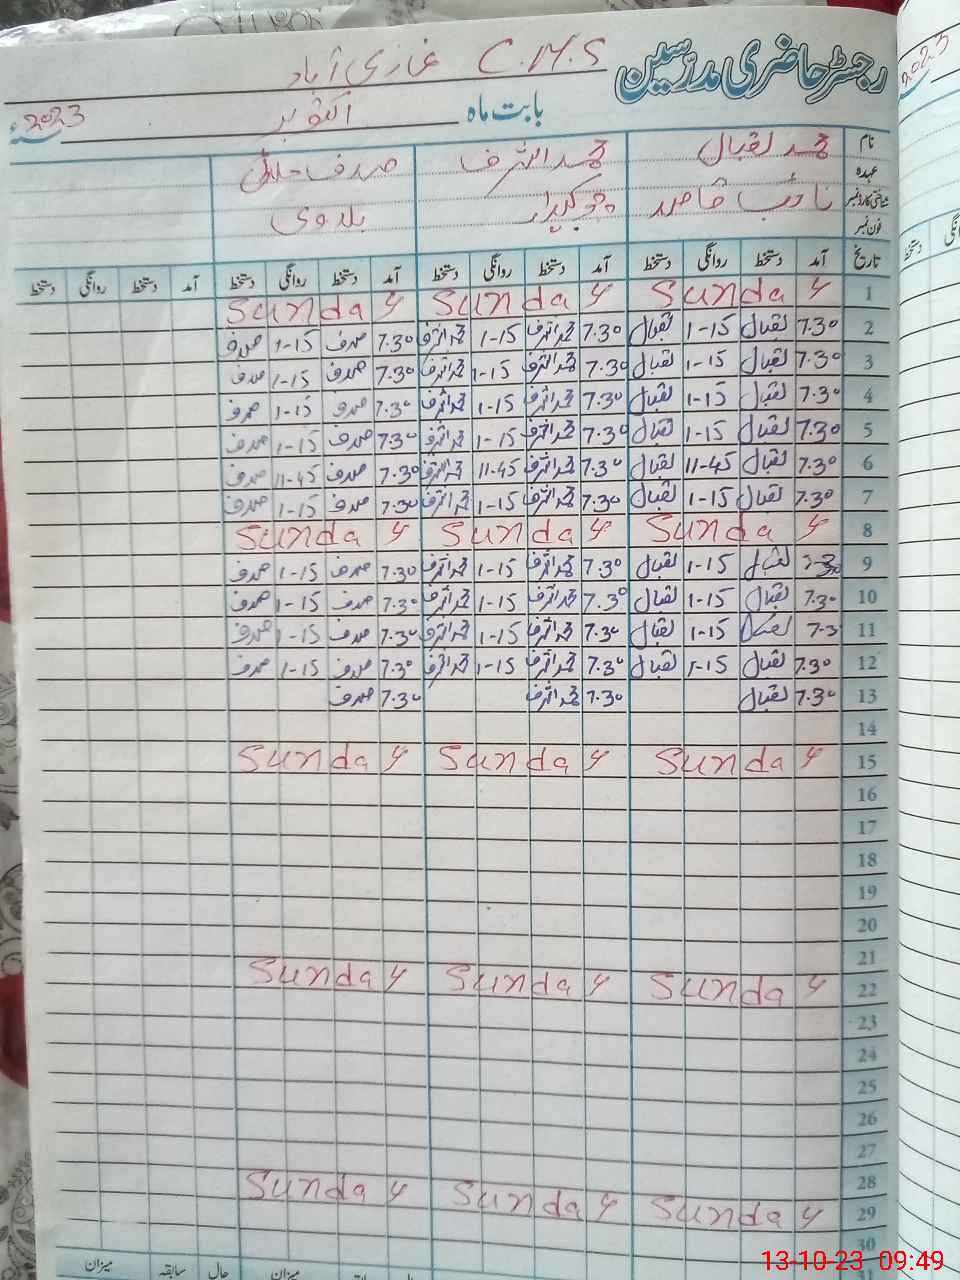 رجسٹر حاضری مدرسین C.M.S غازی آباد
بابت ماہ اکتوبر 2023ء
نام محمد اقبال محمد اشرف صدف
عہدہ
شناختی کارڈ نمبر نائب قاصد چوکیدار
فون نمبر
تاریخ آمد دستخط روانگی دستخط آمد دستخط روانگی دستخط آمد دستخط روانگی دستخط آمد دستخط روانگی دستخط
1 Sunday Sunday Sunday
2 7.30 اقبال 1-15 اقبال 7.30 محمد اشرف 1-15 محمد اشرف 7.30 صدف 1-15 صدف
3 7.30 اقبال 1-15 اقبال 7.30 محمد اشرف 1-15 محمد اشرف 7.30 صدف 1-15 صدف
4 7.30 اقبال 1-15 اقبال 7.30 محمد اشرف 1-15 محمد اشرف 7.30 صدف 1-15 صدف
5 7.30 اقبال 1-15 اقبال 7.30 محمد اشرف 1-15 محمد اشرف 7.30 صدف 1-15 صدف
6 7.30 اقبال 11-45 اقبال 7.30 محمد اشرف 11-45 محمد اشرف 7.30 صدف 11-45 صدف
7 7.30 اقبال 1-15 اقبال 7.30 محمد اشرف 1-15 محمد اشرف 7.30 صدف 1-15 صدف
8 Sunday Sunday Sunday
9 7.30 اقبال 1-15 اقبال 7.30 محمد اشرف 1-15 محمد اشرف 7.30 صدف 1-15 صدف
10 7.30 اقبال 1-15 اقبال 7.30 محمد اشرف 1-15 محمد اشرف 7.30 صدف 1-15 صدف
11 7.3 اقبال 1-15 اقبال 7.30 محمد اشرف 1-15 محمد اشرف 7.30 صدف 1-15 صدف
12 7.30 اقبال 1-15 اقبال 7.30 محمد اشرف 1-15 محمد اشرف 7.30 صدف 1-15 صدف
13 7.30 اقبال 7.30 محمد اشرف 7.30 صدف
14
15 Sunday Sunday Sunday
16
17
18
19
20
21
22 Sunday Sunday Sunday
23
24
25
26
27
28
29 Sunday Sunday Sunday
30
میزان سابقہ حال میزان
13-10-23 09:49